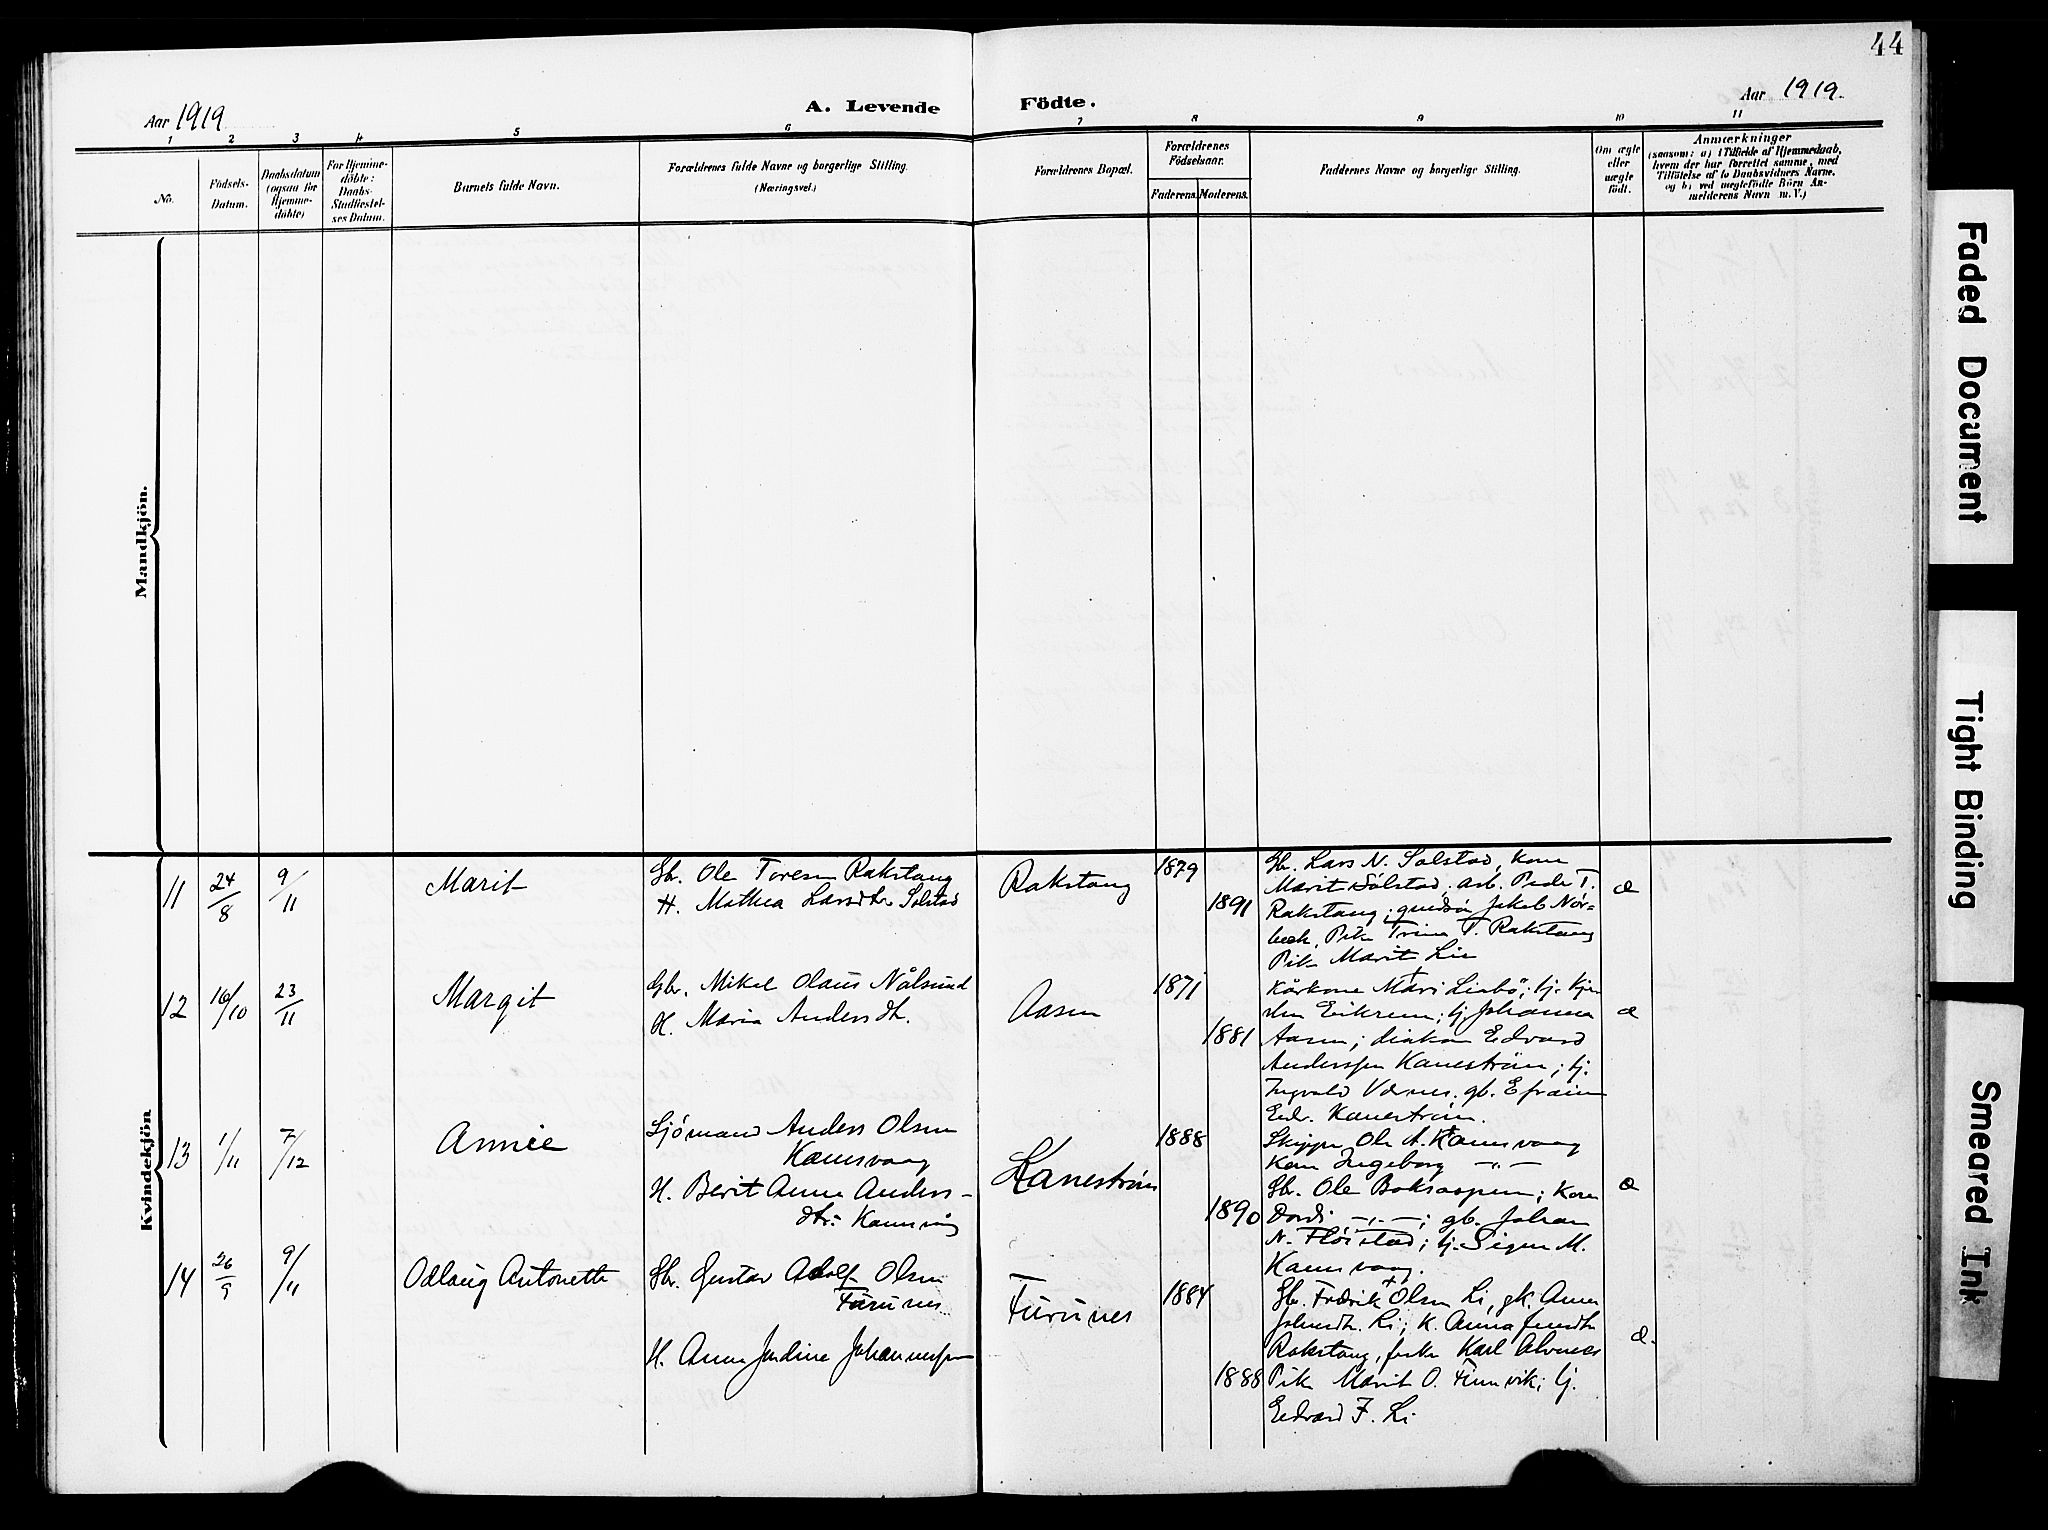 44
Aar 1919
A. Levende Födte.
Aar 1919.
1 2 3 4 5 6 7 8 9 10 11
No.
Födsels-
Datum.
Daabsdatum
(ogsaa for
Hjemme-
döbte)
For Hjemme-
döbte:
Daabs-
Stadfæstel-
ses Datum.
Barnets fulde Navn.
Forældrenes fulde Navne og borgerlige Stilling.
(Næringsvei.)
Forældrenes Bopæl.
Forældrenes
Födselsaar.
Faderens. Moderens.
Faddernes Navne og borgerlige Stilling.
Om ægte
eller
uægte
födt.
Anmærkninger
(saasom: a) i Tilfælde af Hjemmedaab,
hvem der har forrettet samme, med
Tilföielse af to Daabsvidners Navne,
og b) ved uægtefödte Börn An-
melderens Navn m. V.)
Mandkjön.
Kvindekjön
11
24/8
9/11
Marit
Gbr. Ole Toresen Rakstang
H. Mathea Larsdtr Solstad
Rakstang
1879
1891
Gbr. Lars N. Solstad, Kone
Marit Solstad, arb. Peder T.
Rakstang; Jakob Nor-
beck, Pike Trina T. Rakstang
Pike Marit Lie
æ
12
16/10
23/11
Margit
Gbr. Mikal Olaus Nålsund
H. Maria Andersdtr.
Aasen
1871
1881
Kårkone Mari Liabö; tj.
Eikrem; tj. Johanna
Aasen; diakon Edvard
Anderssen Kanestrøm; tj.
Ingvald Værnes. gb. Efraim
Edv. Kanestrøm.
æ
13
1/11
7/12
Annie
Sjömand Anders Olsen
Karnsvaag
H. Berit Anna Anders-
dtr.
Kanestrøm
1888
1890
Skipper Ole A. Karnsvaag
Kone Ingeborg -"-
Gbr. Ole Boksaspen; Kone
Dordi -"-; gb. Johan
N. Fløistad; tj. Signe M.
Karnsvaag.
æ
14
26/9
9/11
Odlaug Antonette
Gbr. Gustav Adolf Olsen
Furunes
H. Anna Jendine Johannessen
Furunes
1884
1888
Gbr. Fredrik Olsen Li, gk. Anne
Li; K. Anna
Rakstang, fisker Karl Alvnes
Pike Marit O. Finnvik; tj.
Edvard F. Li
æ.
Faded Document
Tight Binding
Smeared Ink